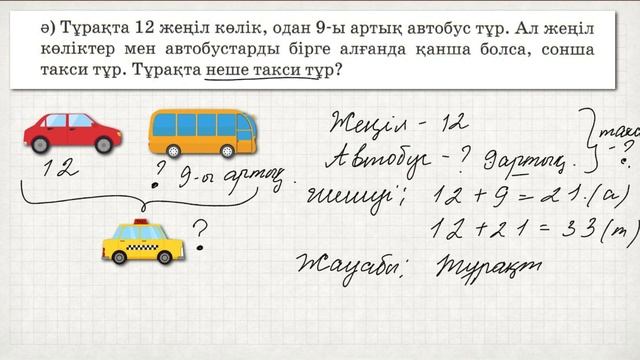 ә) Тұрақта 12 жеңіл көлік, одан 9-ы артық автобус тұр. Ал жеңіл
көліктер мен автобустарды бірге алғанда қанша болса, сонша
такси тұр. Тұрақта неше такси тұр?
12
? 9-ы артық.
?
Жеңіл - 12
Автобус - ? 9 артық.
такс
- ?
Шешуі; 12 + 9 = 21.(а)
12 + 21 = 33(т)
Жауабы; Тұрақт